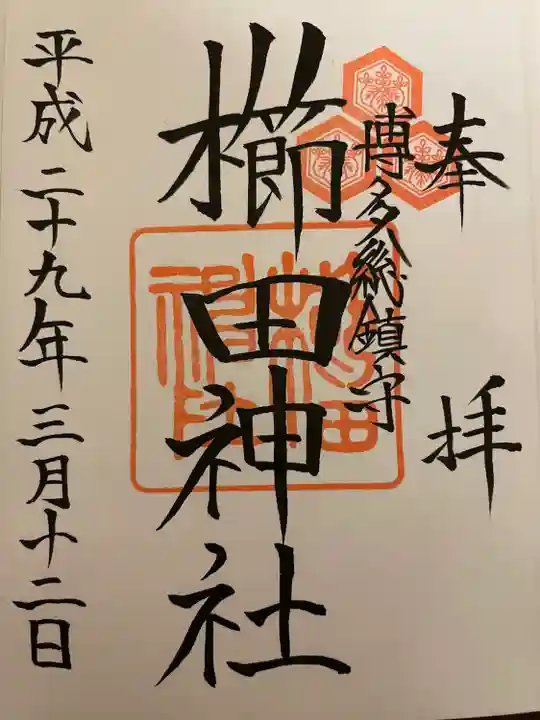 奉拝
博多総鎮守
櫛田神社
平成二十九年三月十二日